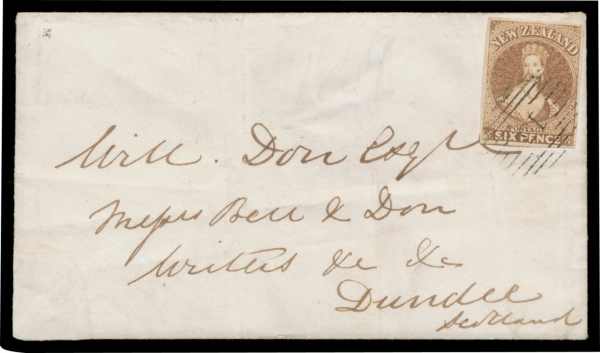 NEW ZEALAND
POSTAGE
SIX PENCE
Will. Don Esqr
Messrs Bell & Don
Writers &c &c
Dundee
Scotland